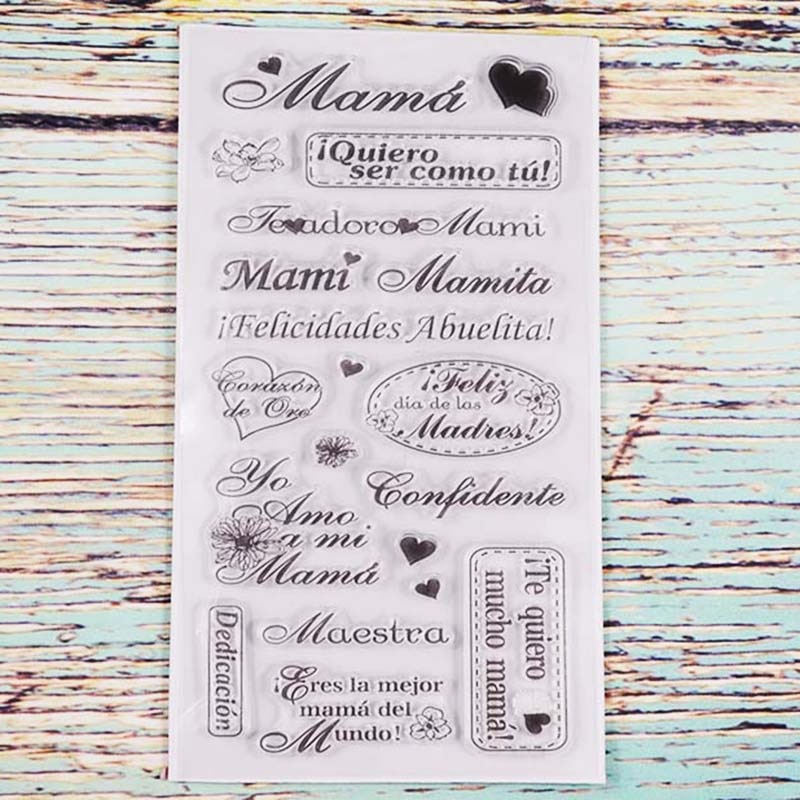 Mamá
¡Quiero
ser como tú!
Te adoro Mami
Mami Mamita
¡Felicidades Abuelita!
Corazón
de Oro
¡Feliz
día de las
Madres!
Yo
Amo
a mi
Mamá
Confidente
¡Te quiero
mucho mamá!
Dedicación
Maestra
¡Eres la mejor
mamá del
Mundo!